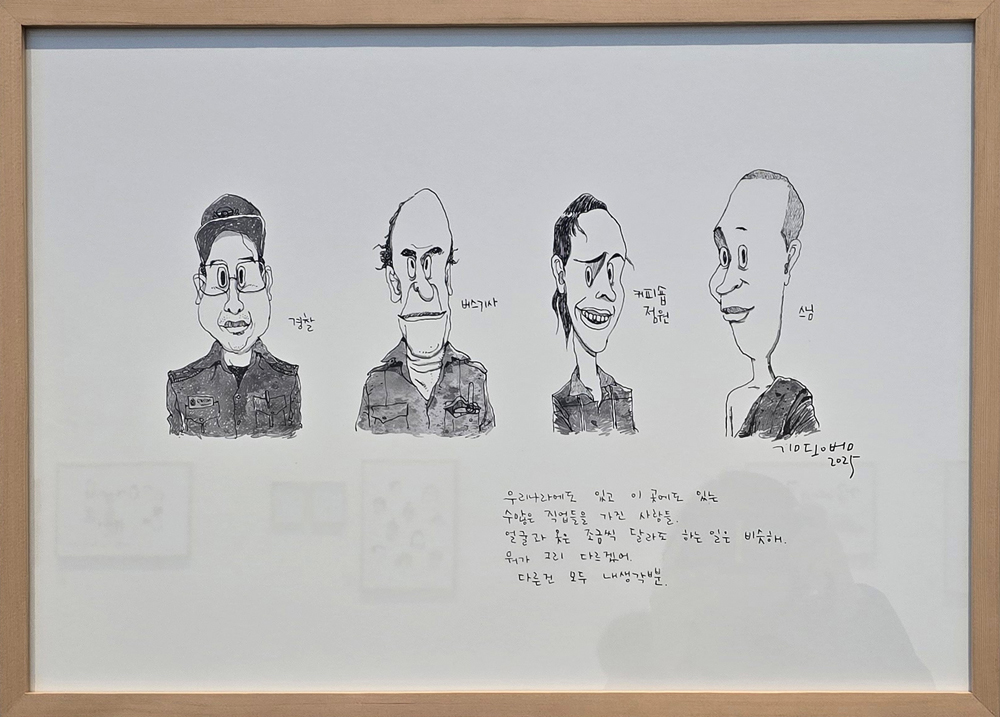 경찰
버스기사
커피숍
점원
스님
기안84
2025
우리나라에도 있고 이 곳에도 있는
수많은 직업들을 가진 사람들.
얼굴과 옷은 조금씩 달라도 하는 일은 비슷해.
뭐가 그리 다르겠어.
다른건 모두 내생각뿐.